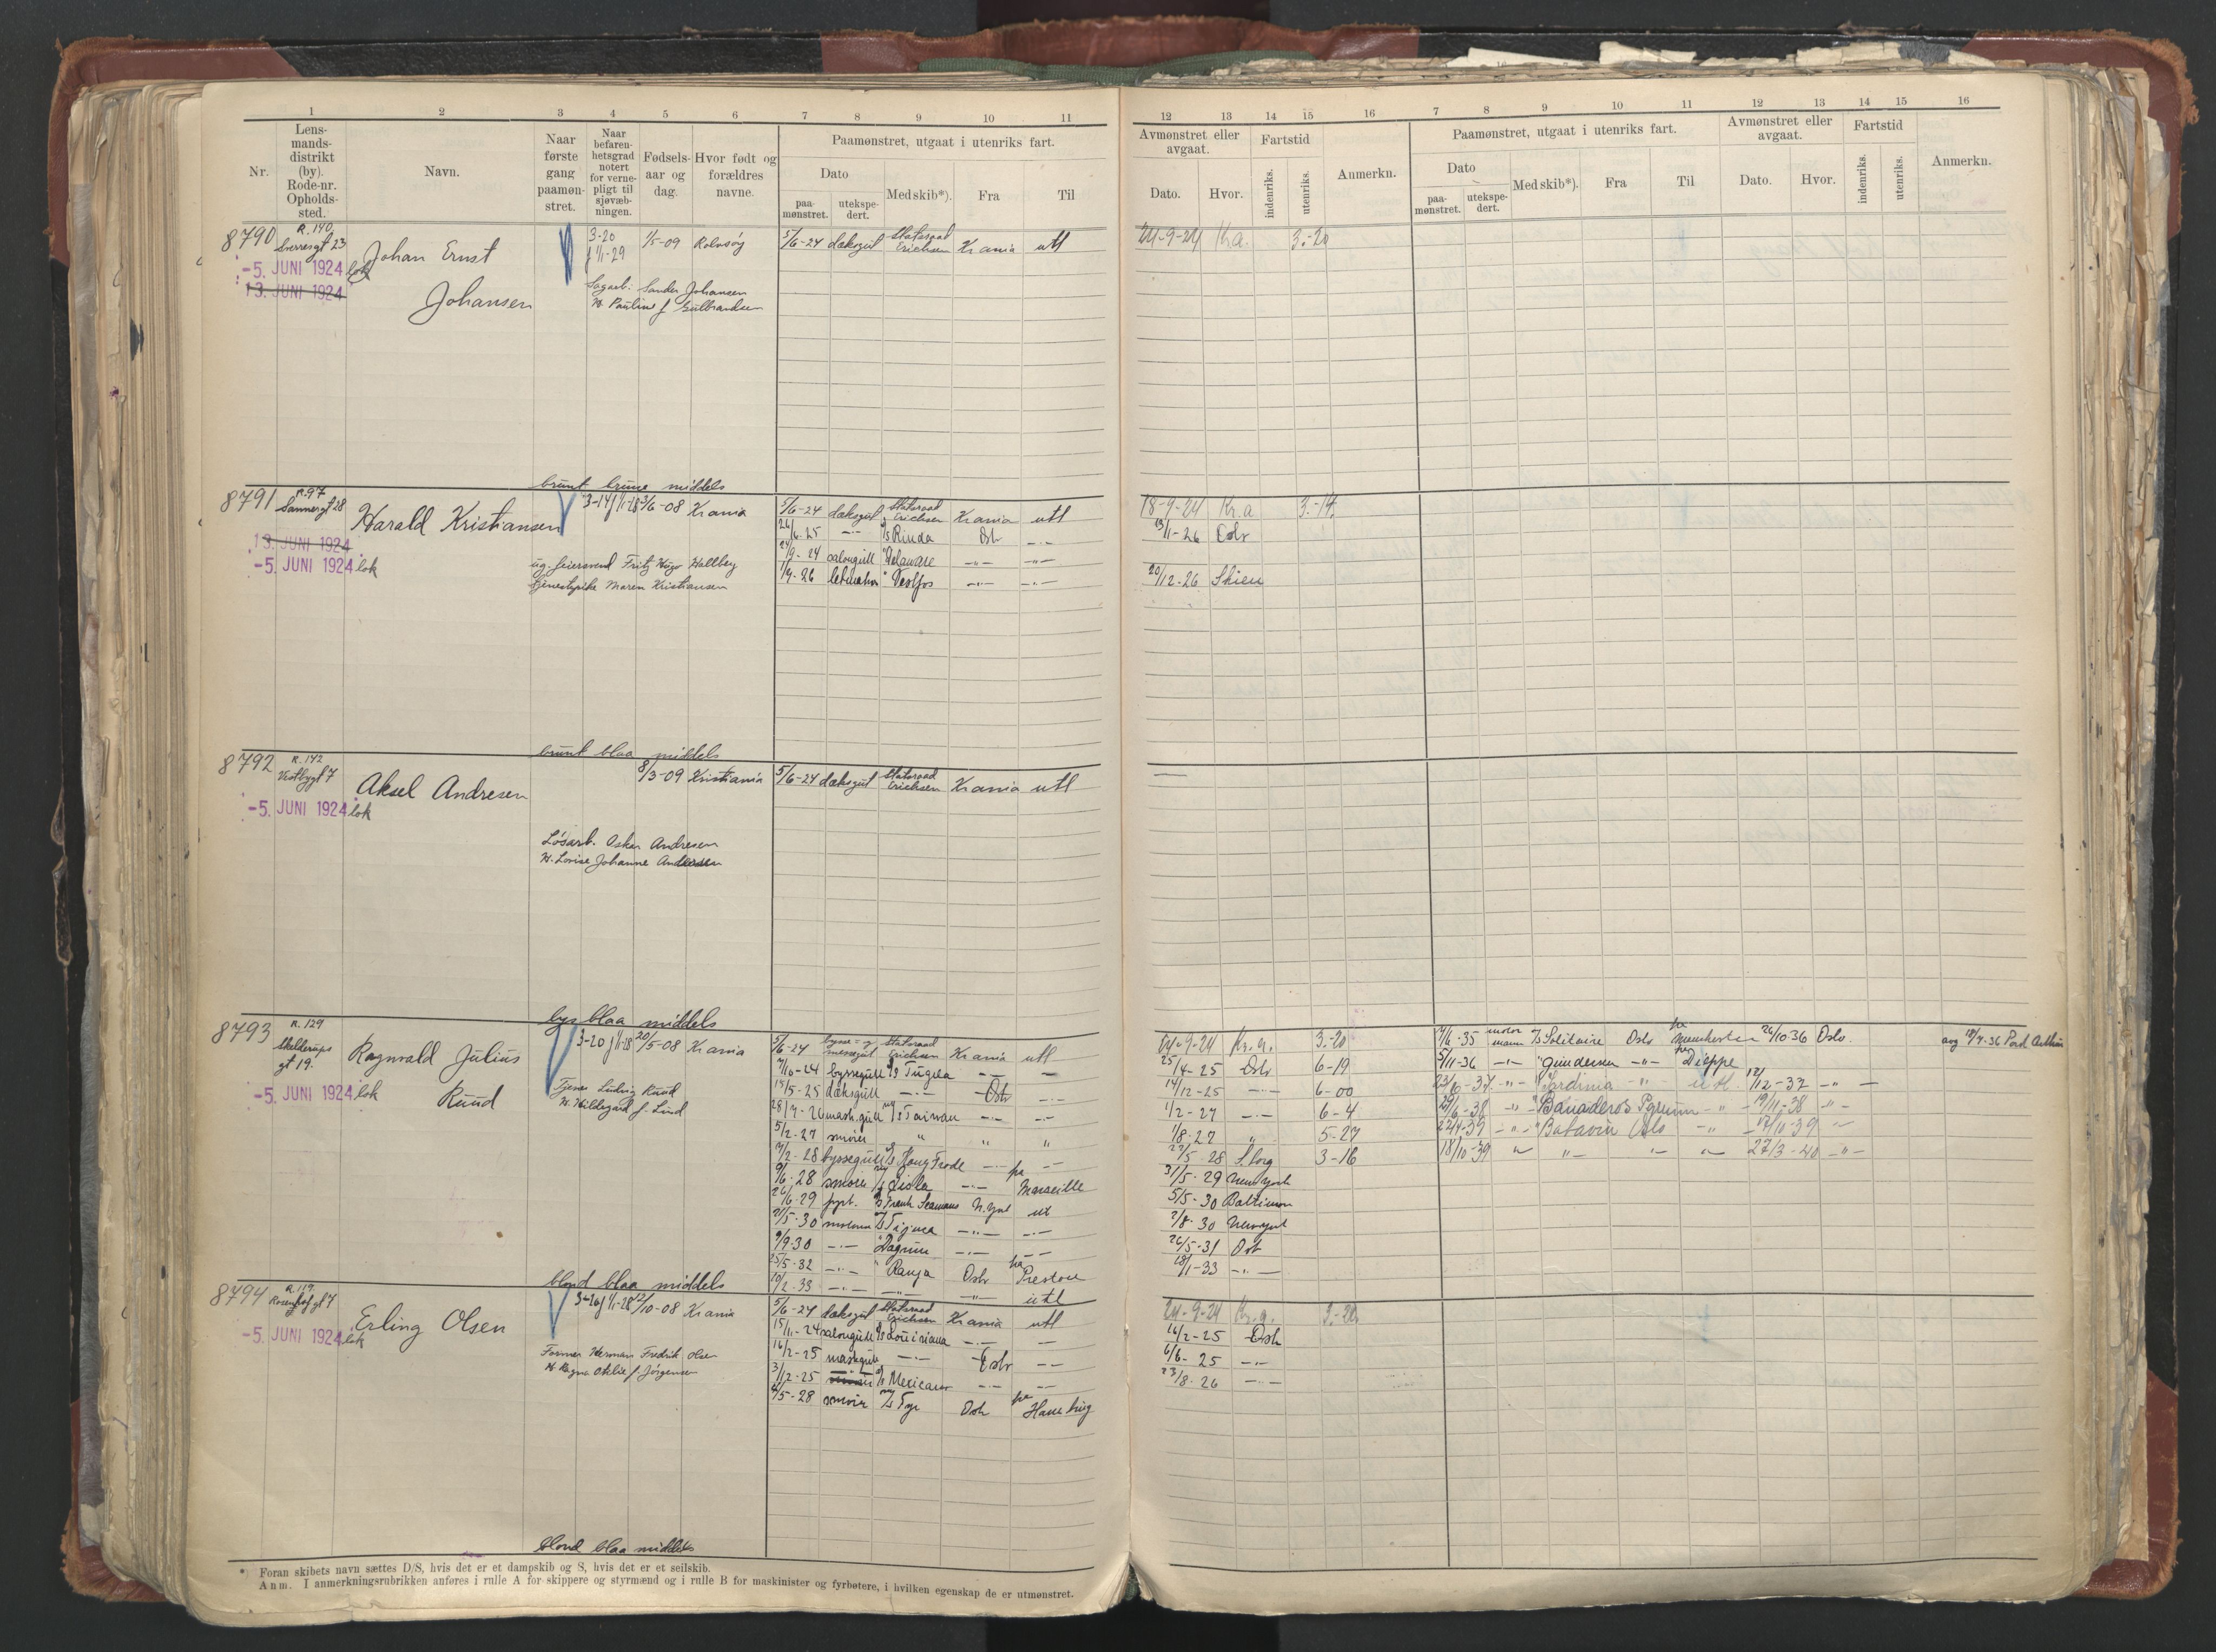 1 2 3 4 5 6 7 8 9 10 11
Nr.
Lens-
mands-
distrikt
(by).
Rode-nr.
Opholds-
sted.
Navn.
Naar
første
gang
paamøn-
stret.
Naar
befaren-
hetsgrad
notert
for verne-
pligt til
sjøvæb-
ningen.
Fødsels-
aar og
dag.
Hvor født og
forældres
navne.
Paamønstret, utgaat i utenriks fart.
Dato
paa-
mønstret.
utekspe-
dert.
Med skib*).
Fra
Til
12 13 14 15 16 7 8 9 10 11 12 13 14 15 16
Avmønstret eller
avgaat.
Dato.
Hvor.
Fartstid
indenriks.
utenriks.
Anmerkn.
Paamønstret, utgaat i utenriks fart.
Dato
paa-
mønstret.
utekspe-
dert.
Med skib*).
Fra
Til
Avmønstret eller
avgaat.
Dato.
Hvor.
Fartstid
indenriks.
utenriks.
Anmerkn.
8790
R. 140
Sverresgt 23
-5. JUNI 1924 lok
13. JUNI 1924
Johan Ernst
Johansen
3-20
f 1/1-29
1/5-09 Rolvsøy
Sagarb. Sander Johansen
H. Pauline f Gulbrandsen
5/6-24 dæksgut Statsraad Erichsen Krania utl
24-9-24 Kra. 3.-20
brunt brune middels
8791
R. 97
Sannergt 28
13. JUNI 1924
-5. JUNI 1924 lok
Harald Kristiansen
3-14 f 1/1-28 3/6-08 Krania
ug. feiersvend Fritz Hugo Hallberg
tjenestepike Maren Kristiansen
5/6-24 dæksgut Statsraad Erichsen Krania utl
26/6-25 -"- Rinda Oslo -"-
24/9-24 salongutt " Delaware -"- -"-
1/9-26 letmatr " Vestfos -"- -"-
18-9-24 Kr.a 3.-14.
13/1-26 Oslo
20/12-26 Skien
brunt blaa middels
8792
R. 142
Vestbygt 7
-5. JUNI 1924 lok
Aksel Andresen
8/3-09 Kristiania
Løsarb. Oskar Andresen
H. Lovise Johanne Andersen
5/6-24 dæksgut Statsraad Erichsen Krania utl
lys blaa middels
8793
R. 129
Skelderups
gt 19.
-5. JUNI 1924 lok
Ragnvald Julius
Ruud
3-20 f 1/1-28 20/5-08 Krania
Tjener Ludvig Ruud
H. Hildegard f. Lind
5/6-24 bysse- og messegut Statsraad Erichsen Krania utl
7/10-24 byssegutt Tugela -"- -"-
15/5-25 dæksgutt -"- Oslo -"-
28/7-26 mask.gutt M/S Taiwan -"- -"-
5/2-27 smører " " "
7/2-28 byssegutt Kong Frode -"- pa -"-
9/6-28 smører Leola -"- Marseille
26/6-29 pprt. Frenk Seamans N.York ut
21/5-30 motorm M/S Tijuca -"- -"-
9/9-30 -"- " Dagrun -"- -"-
25/5-32 -"- " Ranja Oslo pa Preston
10/2-33 -"- -"- -"- utl
24-9-24 Kr.a. 3.-20
25/4-25 Oslo 6-19
14/12-25 -"- 6-00
1/2-27 -"- 6-4
1/8-27 " 5-27
22/5 28 S.borg 3-16
31/5-29 New York
5/5-30 Baltimore
2/8-30 Newyork
26/5-31 Osl
18/1-33 -"-
7/6-35 motormann M/S Solitaire Oslo pa Manchester 26/10-36 Oslo. avg 18/7-36 Port Arthur
5/11-36 -"- " Gundersen -"- pa Dieppe
23/10-37 -"- " Sardinia -"- utl. 12/12-37 -"-
29/6-38 -"- " Banaderos Pgrunn -"- 19/11-38 -"-
22/4-39 -"- " Batavia Oslo -"- 17/10-39 -"-
18/10-39 -"- -"- -"- -"- 27/3-40 -"-
blond blaa middels
8794
R. 119
Rosenhofgt 7
-5. JUNI 1924 lok
Erling Olsen
3-20 f 1/1-28 12/10-08 Krania
Former Herman Fredrik Olsen
H. Ragna Othilie f. Jørgensen
5/6-24 dæksgut Statsraad Erichsen Krania utl
15/11-24 salongutt Louisiana -"- -"-
16/2-25 maskgutt -"- Oslo -"-
3/12-25 Mexicano -"- -"-
4/5-28 smører M/S Tyr Oslo pa Hamburg
24-9-24 Kr.a. 3.-20
16/2-25 Oslo
6/6-25 -"-
23/8-26 -"-
blond blaa middels
*) Foran skibets navn sættes D/S, hvis det er et dampskib og S, hvis det er et seilskib.
Anm. I anmerkningsrubrikken anføres i rulle A for skippere og styrmænd og i rulle B for maskinister og fyrbøtere, i hvilken egenskap de er utmønstret.